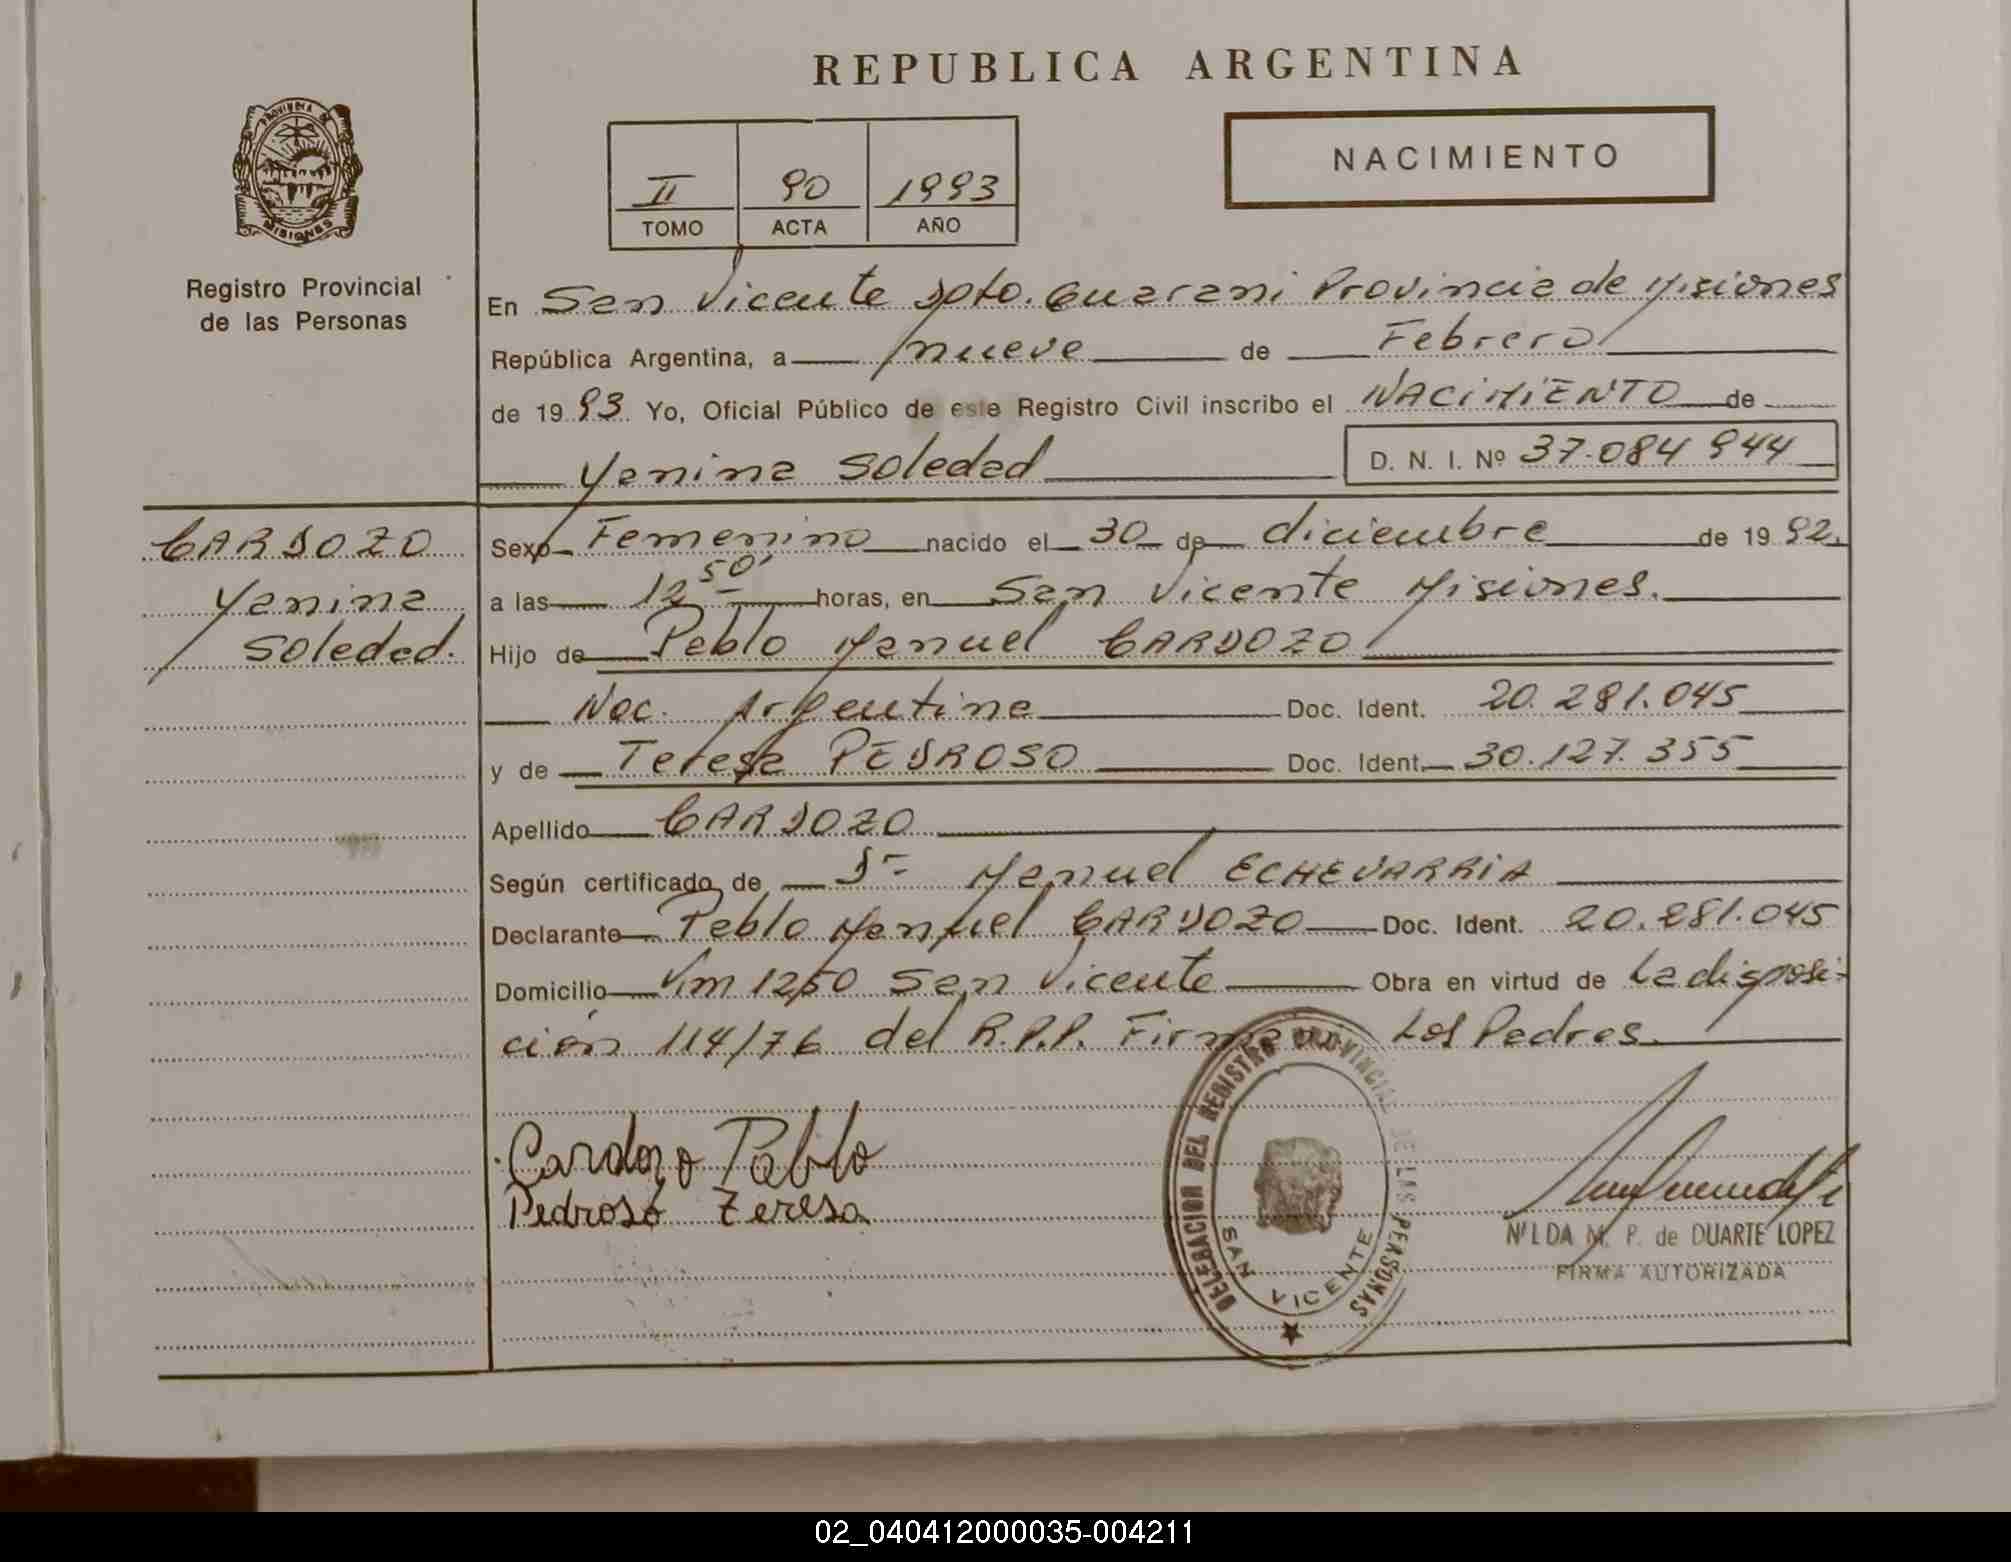 REPUBLICA ARGENTINA
PROVINCIA DE
MISIONES
Registro Provincial
de las Personas
II 90 1993
TOMO ACTA AÑO
NACIMIENTO
En San Vicente Dpto. Guarani Provincia de Misiones
República Argentina, a nueve de Febrero
de 1993 Yo, Oficial Público de este Registro Civil inscribo el NACIMIENTO de
Yanina Soledad D. N. I. Nº 37.084 944
CARDOZO
Yanina
Soledad.
Sexo Femenino nacido el 30 de diciembre de 1992.
a las 12 50' horas, en San Vicente Misiones.
Hijo de Pablo Manuel CARDOZO
Nac. Argentina Doc. Ident. 20.281.045
y de Teresa PEDROSO Doc. Ident. 30.127.355
Apellido CARDOZO
Según certificado de Dr Manuel ECHEVARRIA
Declarante Pablo Manuel CARDOZO Doc. Ident. 20.281.045
Domicilio Km 1250 San Vicente Obra en virtud de La disposi-
ción 114/76 del R.P.P. Firman Los Padres.
Cardozo Pablo
Pedroso Teresa
DELEGACION DEL REGISTRO PROVINCIAL DE LAS PERSONAS
SAN VICENTE
NILDA M. P. de DUARTE LOPEZ
FIRMA AUTORIZADA
02_040412000035-004211